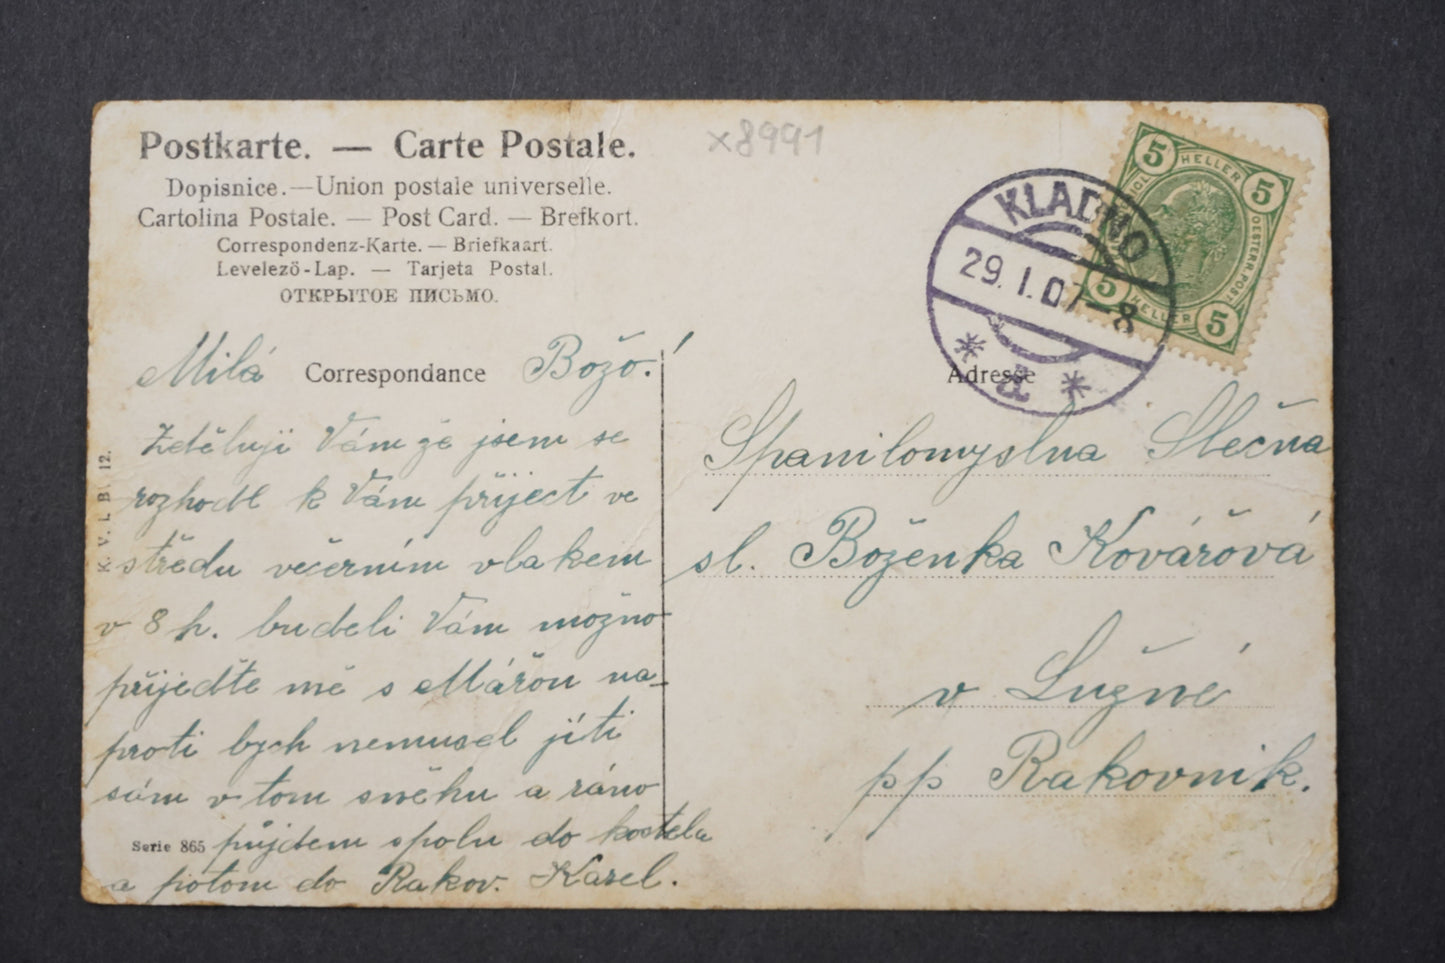 Postkarte. — Carte Postale.
Dopisnice. — Union postale universelle.
Cartolina Postale. — Post Card. — Brefkort.
Correspondenz-Karte. — Briefkaart.
Levelező-Lap. — Tarjeta Postal.
ОТКРЫТОЕ ПИСЬМО.
x8991
Correspondance
Milá Božo!
Zděluji Vám že jsem se
rozhodl k Vám přiject ve
středu večerním vlakem
v 8 h. budeli Vám možno
přijedte mě s Mářou na-
proti bych nemusel jíti
sám v tom sněhu a ráno
půjdem spolu do kostela
a potom do Rakov. Karel.
K. V. i. B. 12.
Serie 865
KLADNO
29. I. 07–8
* a *
5 HELLER 5
OESTERR. POST
5 HELLER 5
Adresse
Spanilomyslna Slečna
sl. Boženka Kovářová
v Lužné
pp Rakovnik.